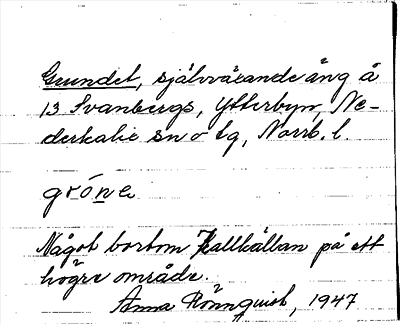 Grundet, självväxande äng å
13 Svanbergs, Ytterbyn, Ne-
derkalix sn o tg, Norrb. l
gróne
Något bortom Kallkällan på ett
högre område.
Anna Rönnquist, 1947